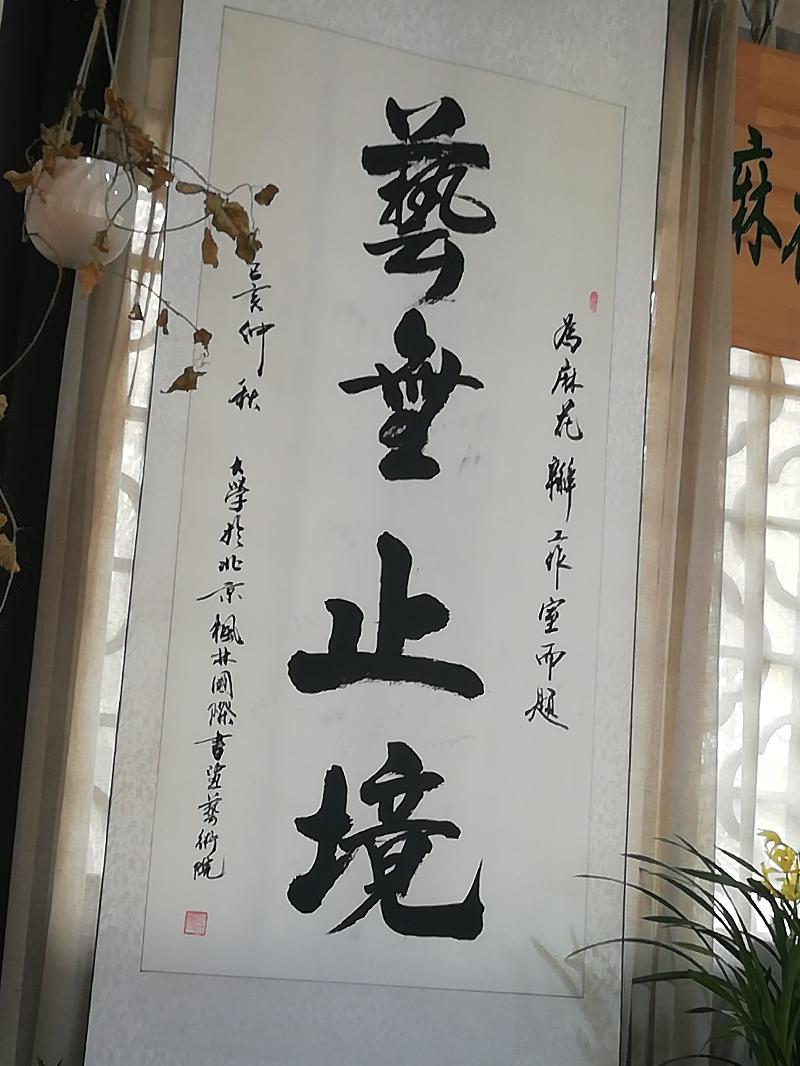 麻
為麻花辮工作室而題
藝無止境
己亥仲秋
大學於北京楓林國際書畫藝術院